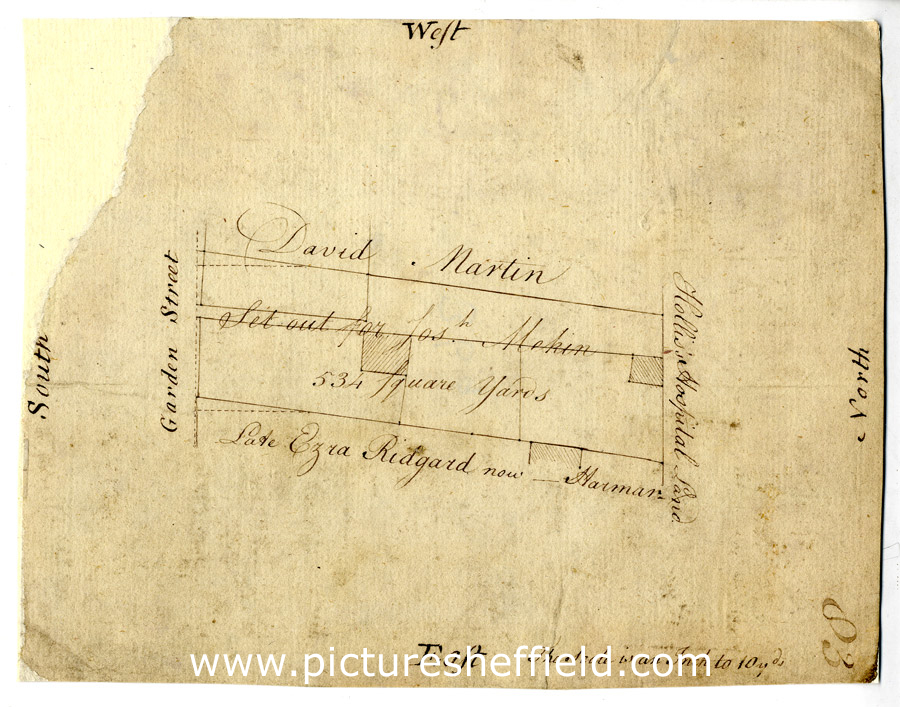 West
David Martin
Garden Street
Set out for Josh. Mekin
534 Square Yards
Late Ezra Ridgard now — Harman
Hollis's Hospital Land
South
North
East
to 10 yds
83
www.picturesheffield.com